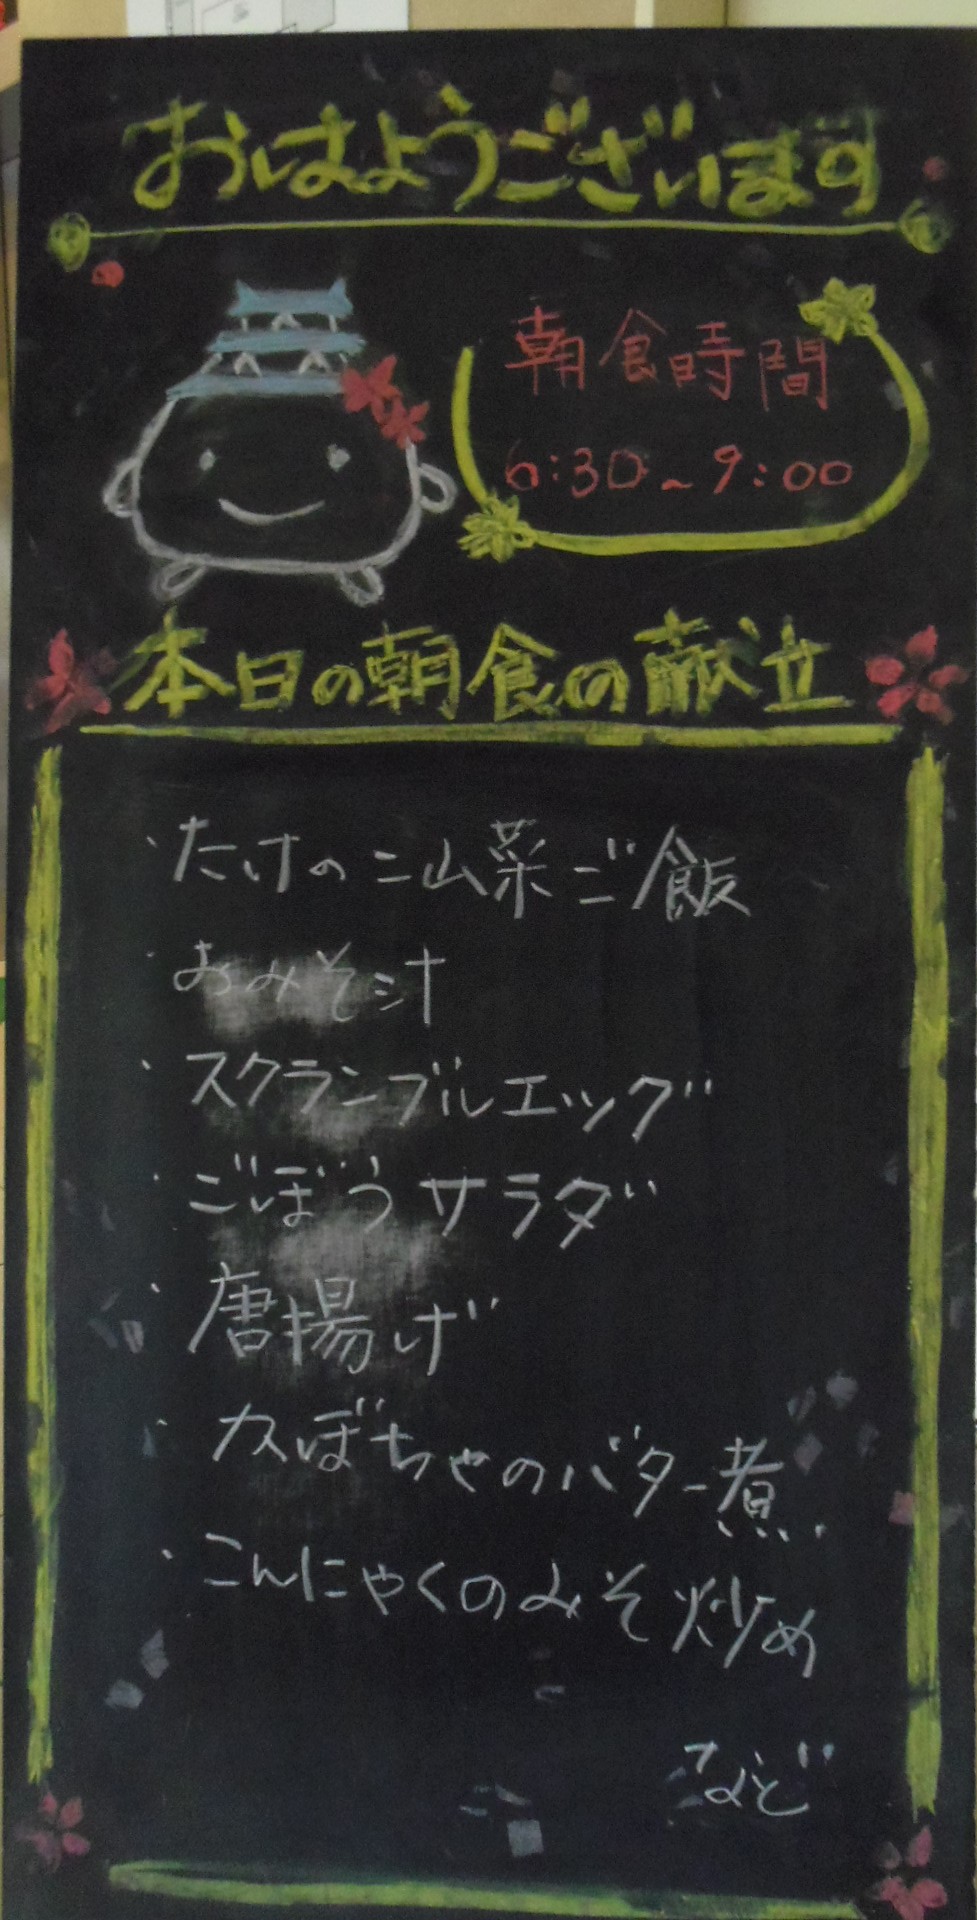 おはようございます
朝食時間
6:30~9:00
本日の朝食の献立
・たけのこ山菜ご飯
・おみそ汁
・スクランブルエッグ
・ごぼうサラダ
・唐揚げ
・カボちゃのバター煮
・こんにゃくのみそ炒め
など